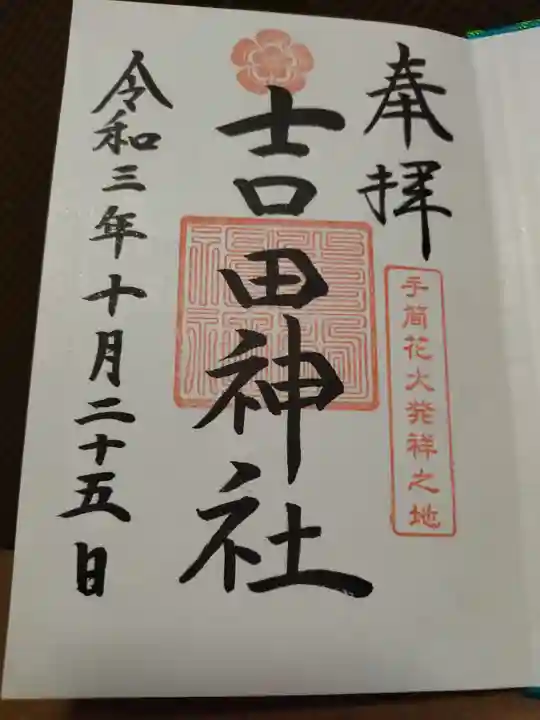 奉拝
手筒花火発祥之地
吉田神社
令和三年十月二十五日